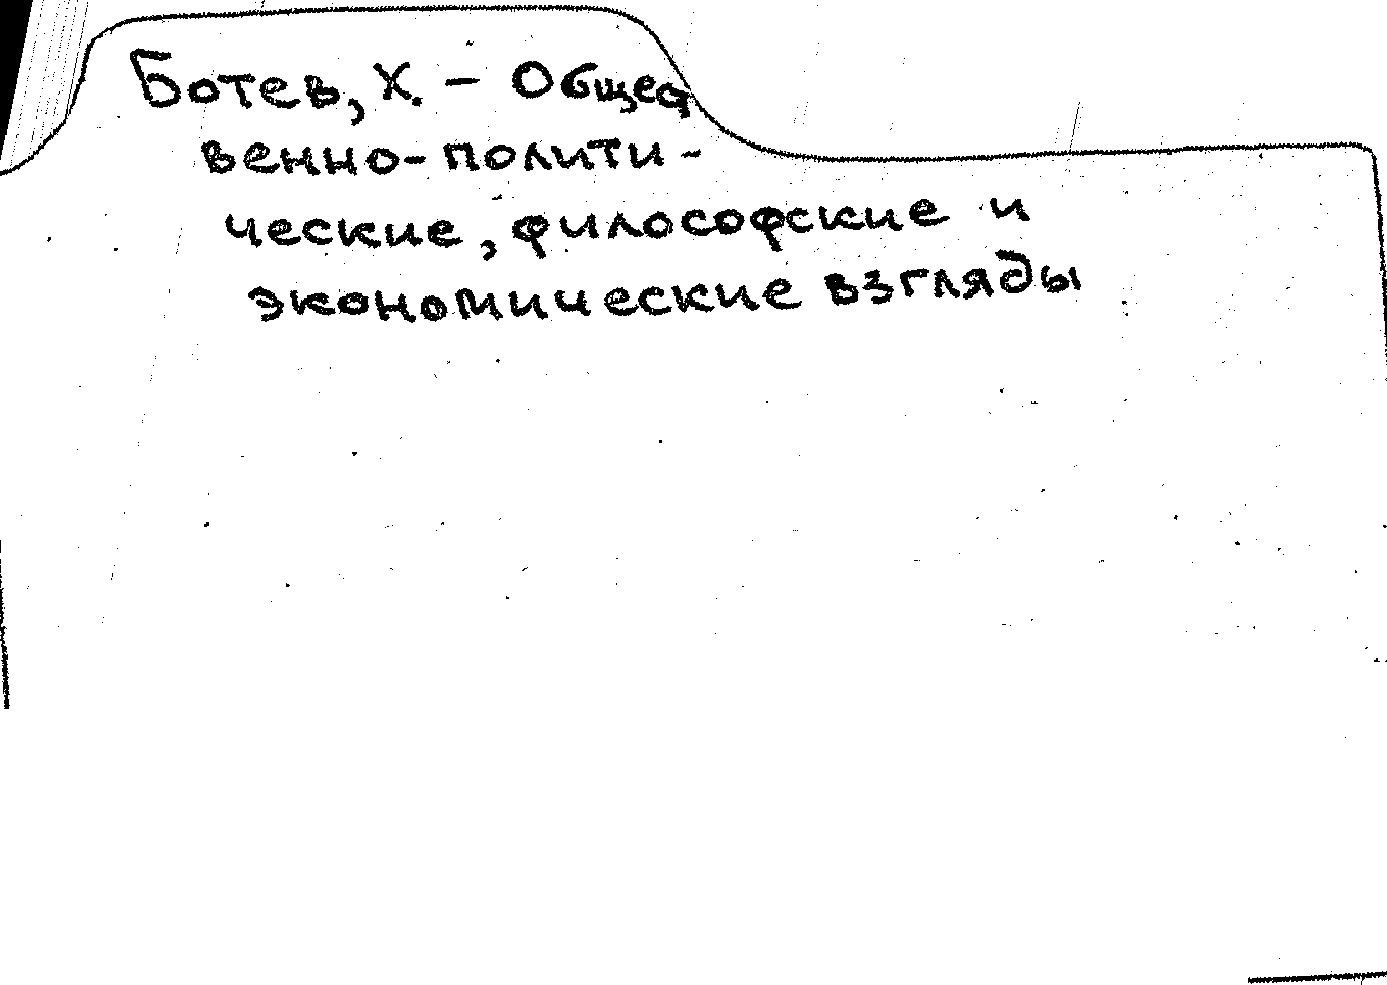 Ботев, Х. – Общест
венно-полити-
ческие, философские и
экономические взгляды